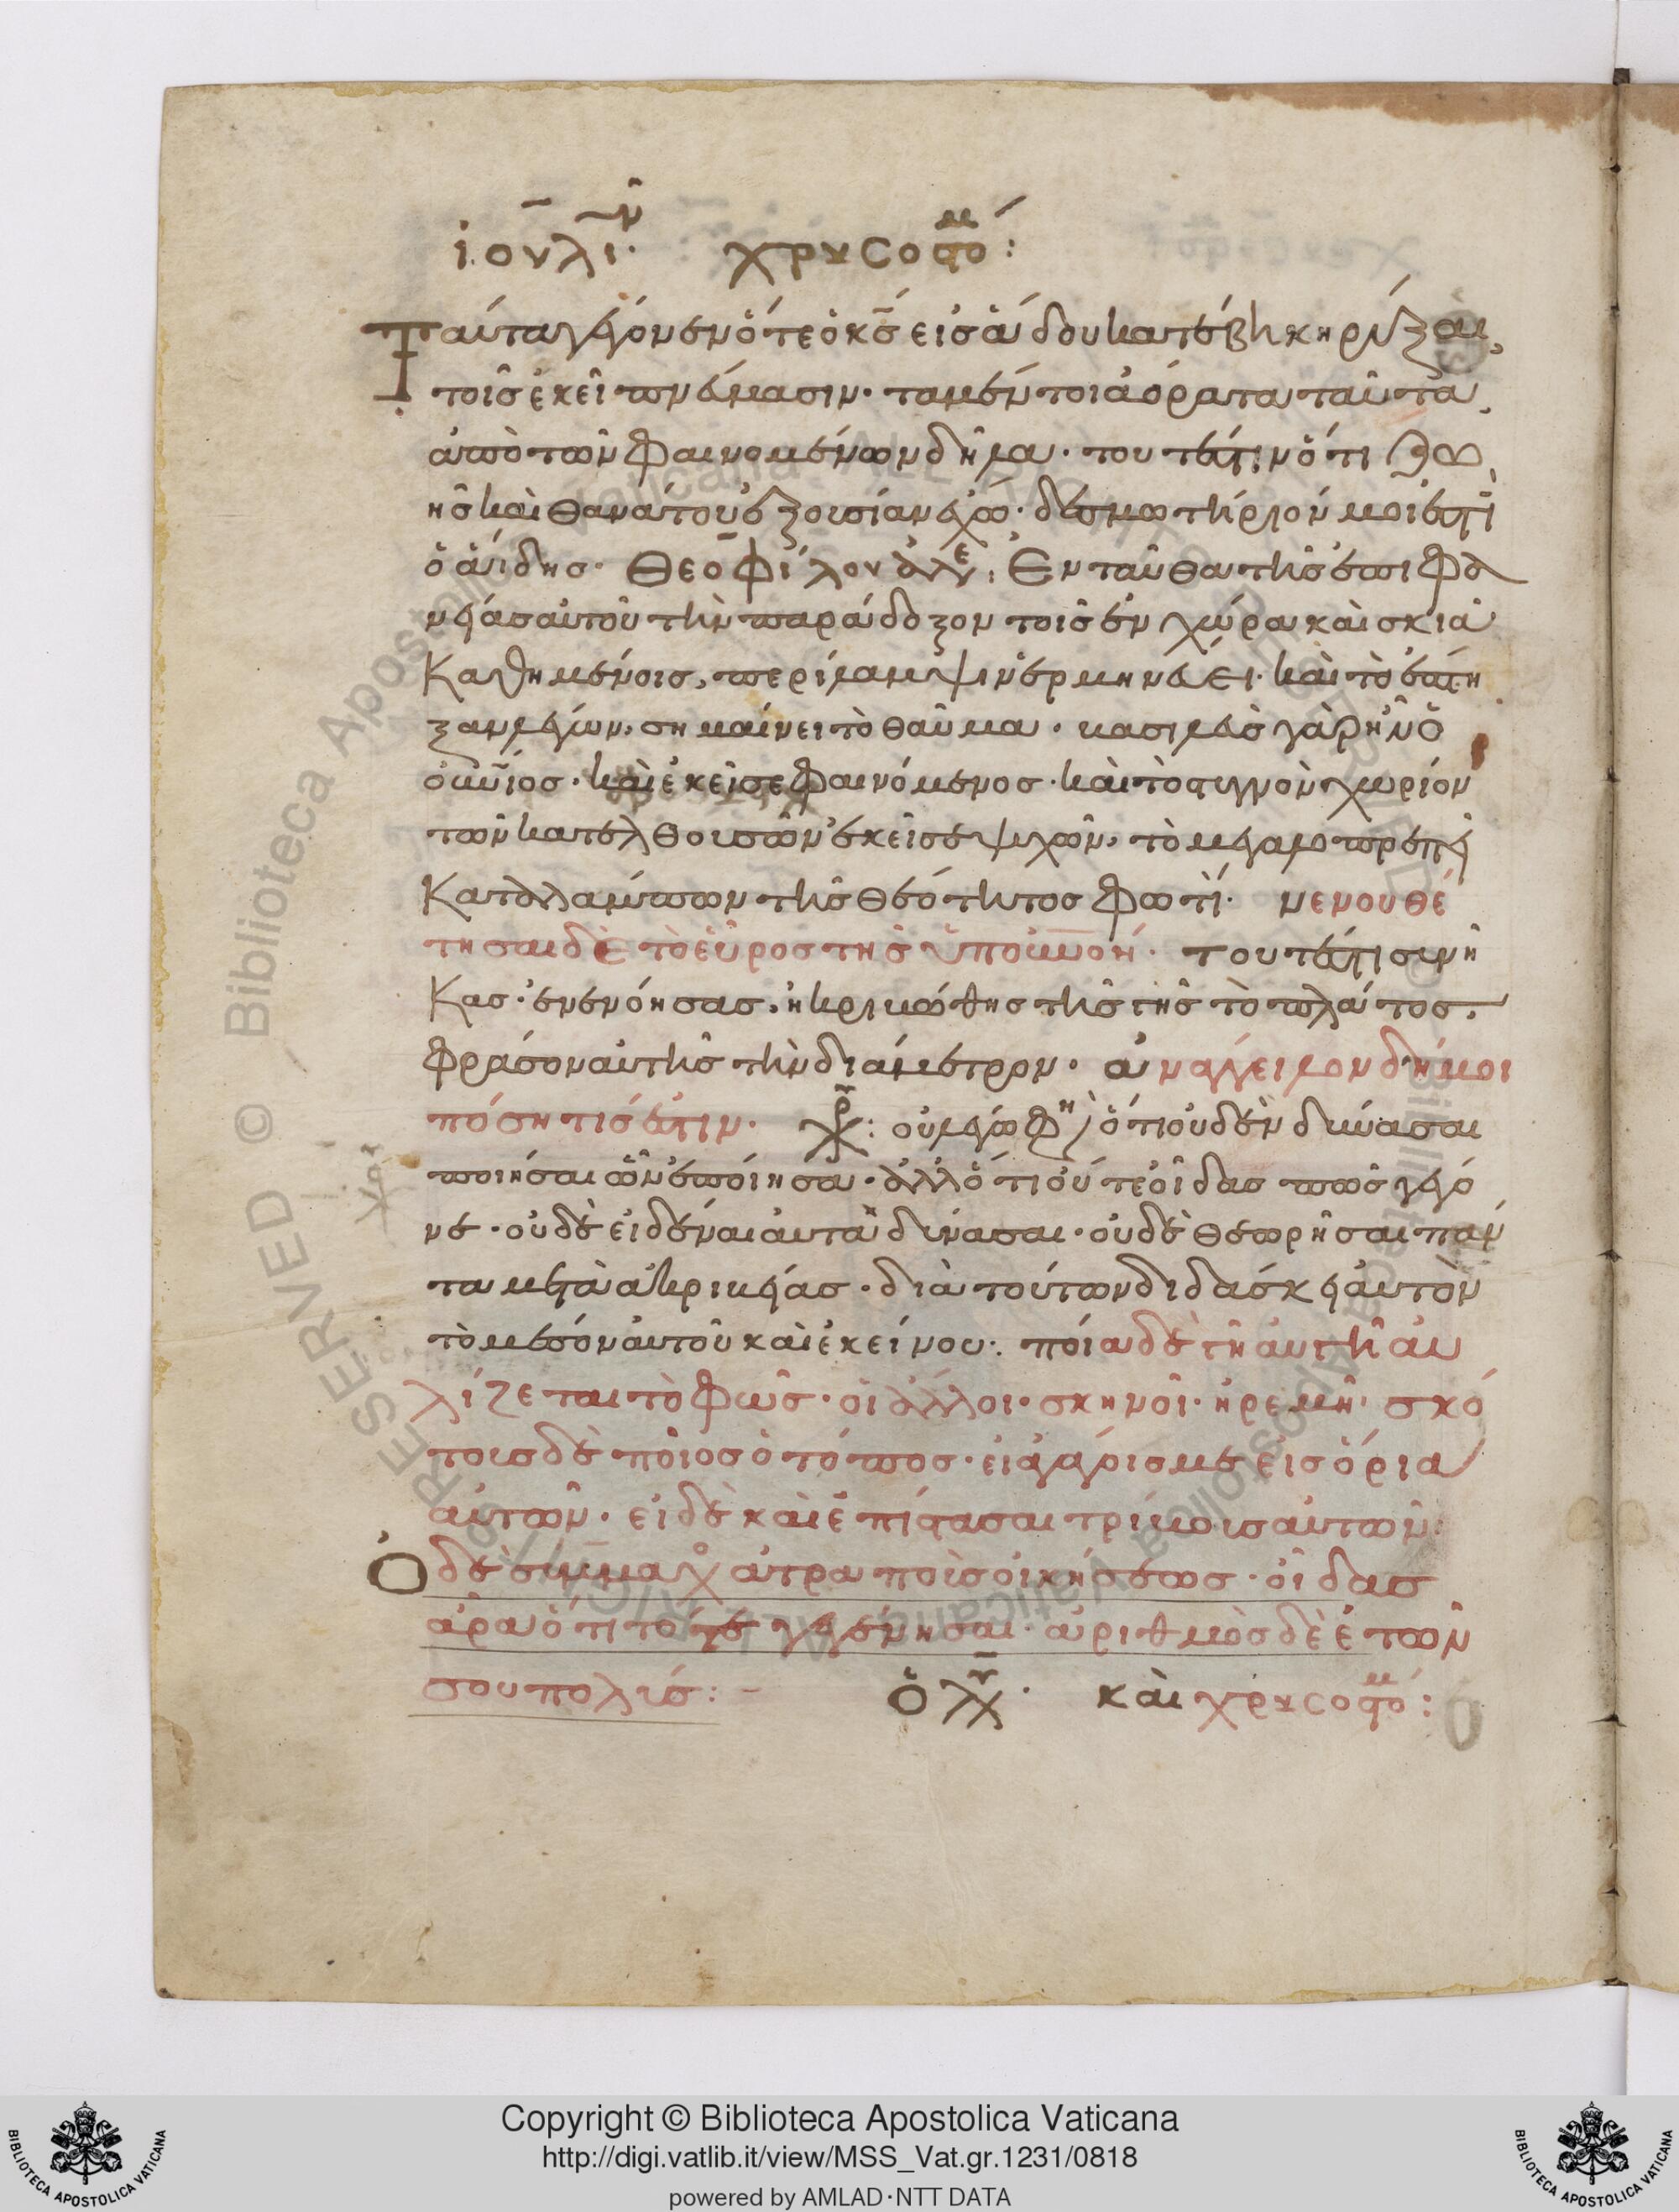 ἰουλι̅ν̂· χρυσοστομ́:
Ταῦτα γέγονεν ὅτε ὁ κ̅ς εἰς ἅδου κατέβη κηρύξαι
τοῖς ἐκεῖ πνεύμασιν· τὰ μέντοι ἀόρατα ταῦτα
ἀπὸ τῶν φαινομένων δῆλα· τουτέστιν ὅτι ζω
ῆς καὶ θανάτου ἐξουσίαν ἔχω· δεσμωτήριόν μοι ἐστὶ
ὁ ἅιδης· Θεοφίλου ἀλε: Ἐνταῦθα τῆς ἐπιφα
νείας αὐτοῦ τὴν παράδοξον τοῖς ἐν χώρα καὶ σκιᾶ
καθημένοις, περίλαμψιν ἑρμηνεύει· καὶ τὸ ἔπτη
ξαν λέγων, σημαίνει τὸ θαῦμα· βασιλεὺς γὰρ ἦν ὁ
ὀ̅κ̅ν̅ιος· καὶ ἐκεῖσε φαινόμενος· καὶ τὸ στυγνὸν χωρίον
τῶν κατελθουσῶν ἐκεῖσε ψυχῶν, τὸ μεγαλοπρεπεῖ
καταλάμπων τῆς θεότητος φωτί· νενουθέ
τησαι δὲ τὸ εὖρος τῆς ὑπ οὐ̅νο̅ν́· τουτέστι συνῆ
κας· ἐνενόησας, ἠκριβώθης τῆς γῆς τὸ πλάτος,
φράσον αὐτῆς τὴν διάμετρον· ἀνάγγειλον δή μοι
πόση τίς ἐστιν· χρ: οὐ λέγω φη ὅτι οὐδὲν δύνασαι
ποιῆσαι ὧν ἐποίησα· ἀλλ ὅτι οὔτε οἶδας πῶς γέγο
νε· οὐδὲ εἰδέναι αὐτὰ δύνασαι· οὐδὲ θεωρῆσαι πάν
τα μετὰ ἀκριβείας· διὰ τούτων διδάσκει αὐτὸν
τὸ μέσον αὐτοῦ καὶ ἐκείνου: ποία δὲ γῆ αὐτῆ αὐ
λίζεται τὸ φῶς· οἱ ἄλλοι· σκηνοῖ· ἠρεμῆ· σκό
τους δὲ ποῖος ὁ τόπος· εἰ ἀγάγοις με εἰς ὅρια
αὐτῶν· εἰ δὲ καὶ ἐπίστασαι τρίβους αὐτῶν:
Ὁ δὲ σύμμαχος ἀτραποὺς οἰκήσεως· οἶδας
ἄρα ὅτι τότε γεγέννησαι· ἀριθμὸς δὲ ἐτῶν
σου πολύς: – ὀλχ· καὶ χρυσοστομ́:
Copyright © Biblioteca Apostolica Vaticana
http://digi.vatlib.it/view/MSS_Vat.gr.1231/0818
powered by AMLAD·NTT DATA
BIBLIOTECA APOSTOLICA VATICANA
BIBLIOTECA APOSTOLICA VATICANA